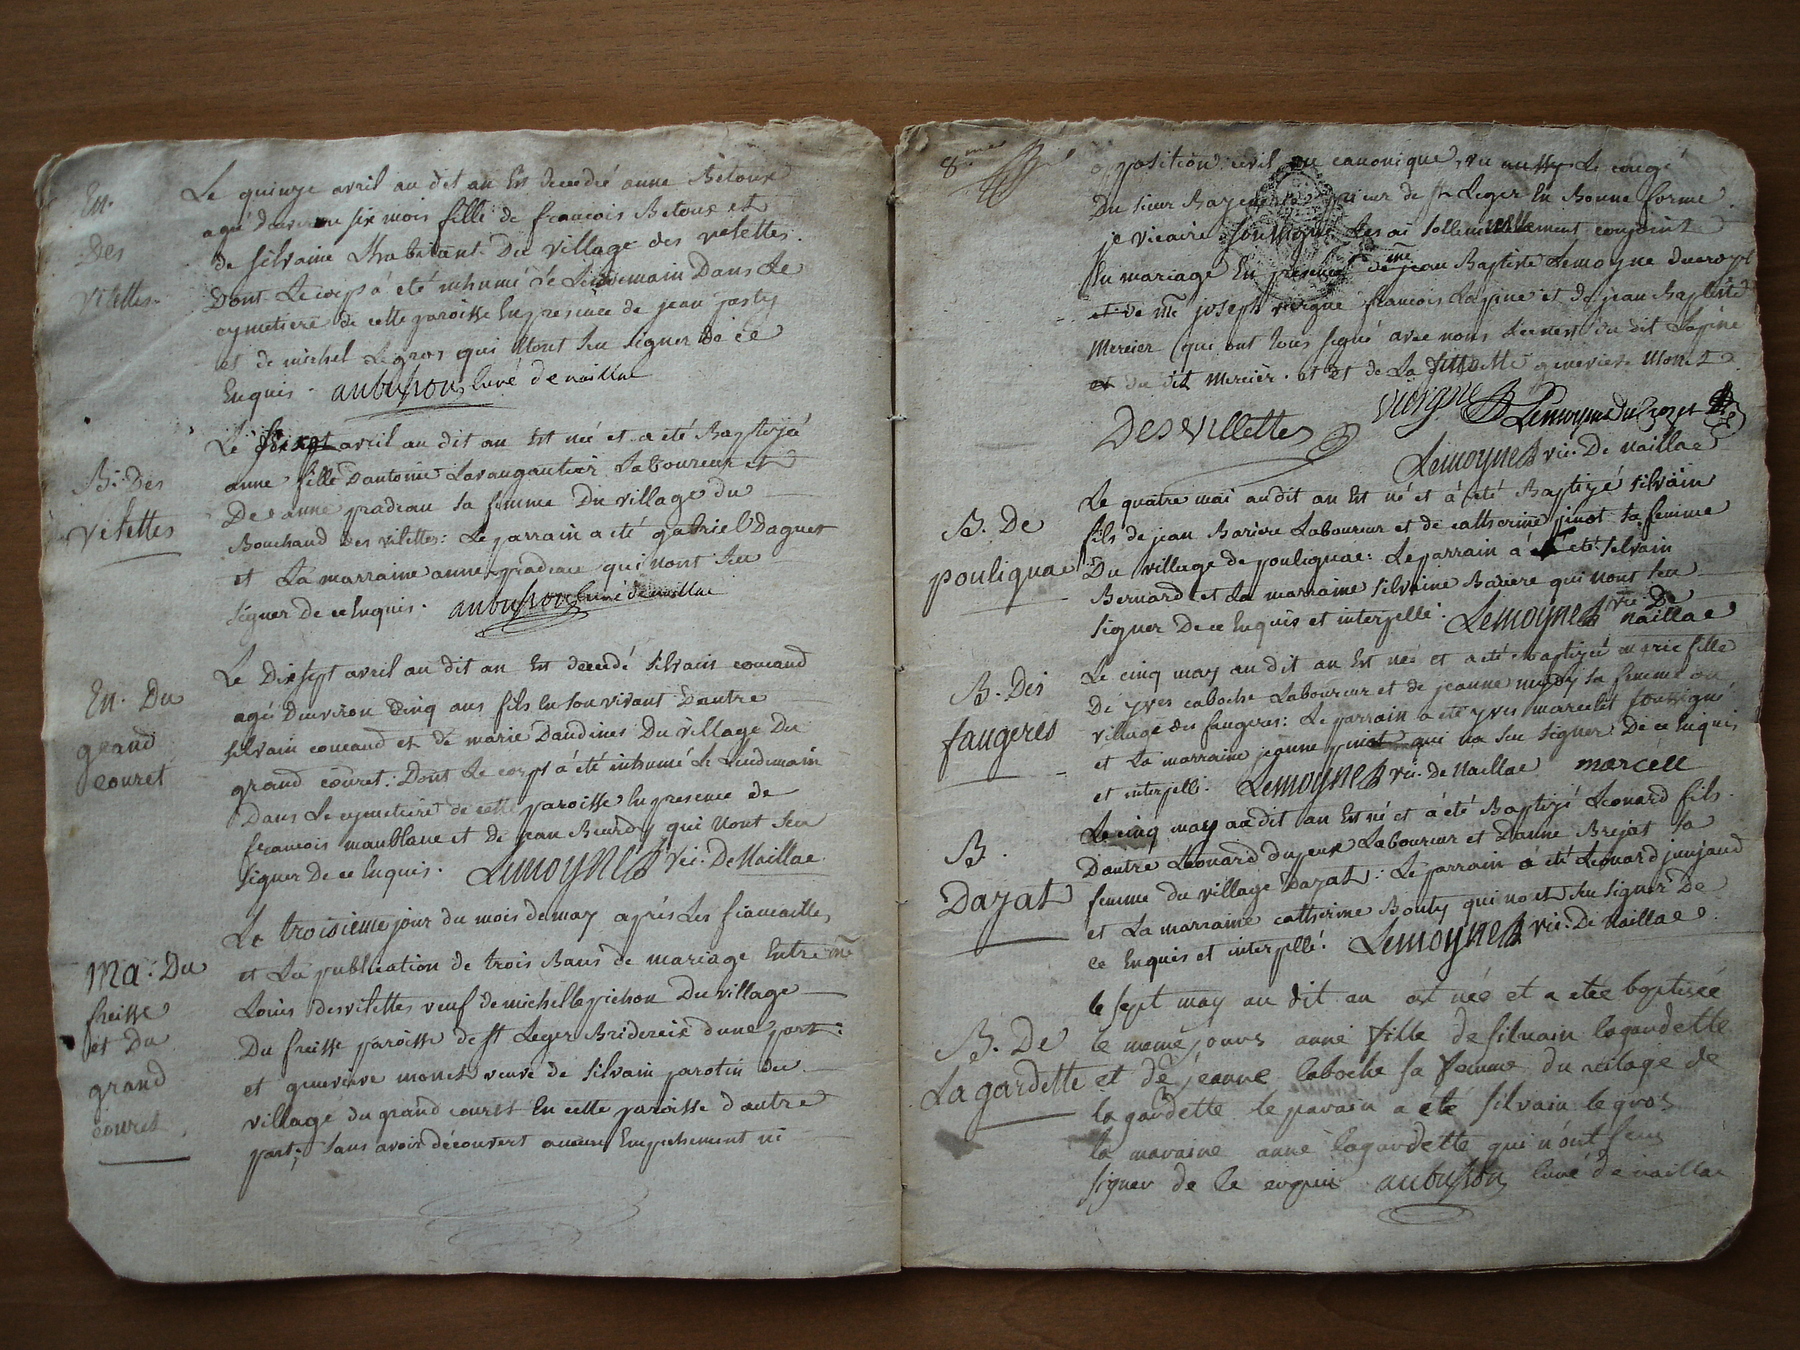 En.
Des
Vilettes.
Le quinze avril au dit an Est decedé anne Betoux
agé denviron six mois fille de francois Betoux et
de silvaine habitant Du village des vilettes.
Dont Le corps á été inhumé Le Lendemain Dans Le
cymetiere de cette paroisse En presence de jean
et de michel Legros qui Nont seu signer de ce
Enquis. aubusson Curé de naillac
B: Des
Vilettes
Le avril au dit an Est née et a été Baptizée
anne fille Dantoine Lavaugautier Laboureur et
De anne pradeau sa femme Du village du
Bouchaud Des vilettes: Le parrain a été gabriel Daguet
et La marraine anne pradeau qui nont seu
signer de ce Enquis. aubusson Curé de naillac
En. Du
grand
couret
Le Dix sept avril au dit an Est decedé silvain couraud
agé Denviron Cinq ans fils En son vivant Dautre
silvain couraud et de marie Daudines Du village Du
grand couret. Dont Le corps á été inhumé Le Lendemain
Dans Le cymetiere de cette paroisse En presence de
francois maublanc et de jean qui Nont seu
signer De ce Enquis. Lemoyne vic. De Naillac
Ma: Du
freisse
et Du
grand
couret
Le troisieme jour du mois de may aprés Les fiancailles
et La publication de trois Bans de mariage Entre me
Louis desvilettes veuf de michelle pichon Du village
Du freisse paroisse de st Leger Bridereix dune part:
et genevieve monet veuve de silvain parotin du
village du grand couret En cette paroisse dautre
part; sans avoir découvert aucun Empechement ni
8me
opposition civil ou canonique, vu aussy Le congé
Du sieur prieur de st Leger En Bonne forme.
je vicaire soussigné Les ai sollennellement conjoint
En mariage En presence de me jean Baptiste Lemoyne ducropt
et de me joseph vergne francois Lapine et de jean Baptiste
Mercier qui ont tous signé avec nous Excepté du dit Lapine
et du dit Mercier. et de La ditte genevieve Monet.
Desvillettes vergne Lemoyne
Lemoyne vic. De Naillac
B. De
poulignac
Le quatre mai audit an Est né et á été Baptizé silvain
fils de jean Bariere Laboureur et de catherine pinot sa femme
Du village de poulignac: Le parrain á été silvain
Bernard et La marraine silvaine Bariere qui nont seu
signer De ce Enquis et interpellé. Lemoyne vic. De
Naillac
B. Des
faugeres
Le cinq may au dit an Est née et a été Baptizée marie fille
De yves caboche Laboureur et de jeanne sa femme au
village des faugeres: Le parrain a été yves marcelet soussigné
et La marraine jeanne pinot qui na seu signer De ce Enquis
et interpellé. Lemoyne vic. de Naillac marcelle
B.
Dazat
Le cinq may au dit an Est né et á été Baptizé Leonard fils
Dautre Leonard dujeux Laboureur et Danne Brejat sa
femme du village Dazat: Le parrain á été Leonard junjaud
et La marraine catherine Bonty qui nont seu signer De
ce Enquis et interpellé. Lemoyne vic. De Naillac.
B. De
La gardette
le sept may au dit an est née et a etee baptisée
le meme jours anne fille de silvain lagardette
et de jeanne laboche sa femme du vilage de
la gardette le parain a été silvain le gros
la maraine anne lagardette qui n'ont seu
signer de ce enquis aubusson curé de naillac